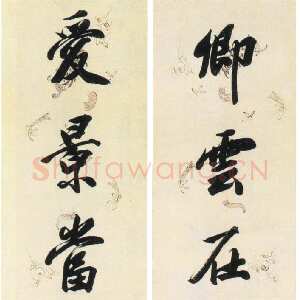 卿雲在
愛景當
Shufawang.CN